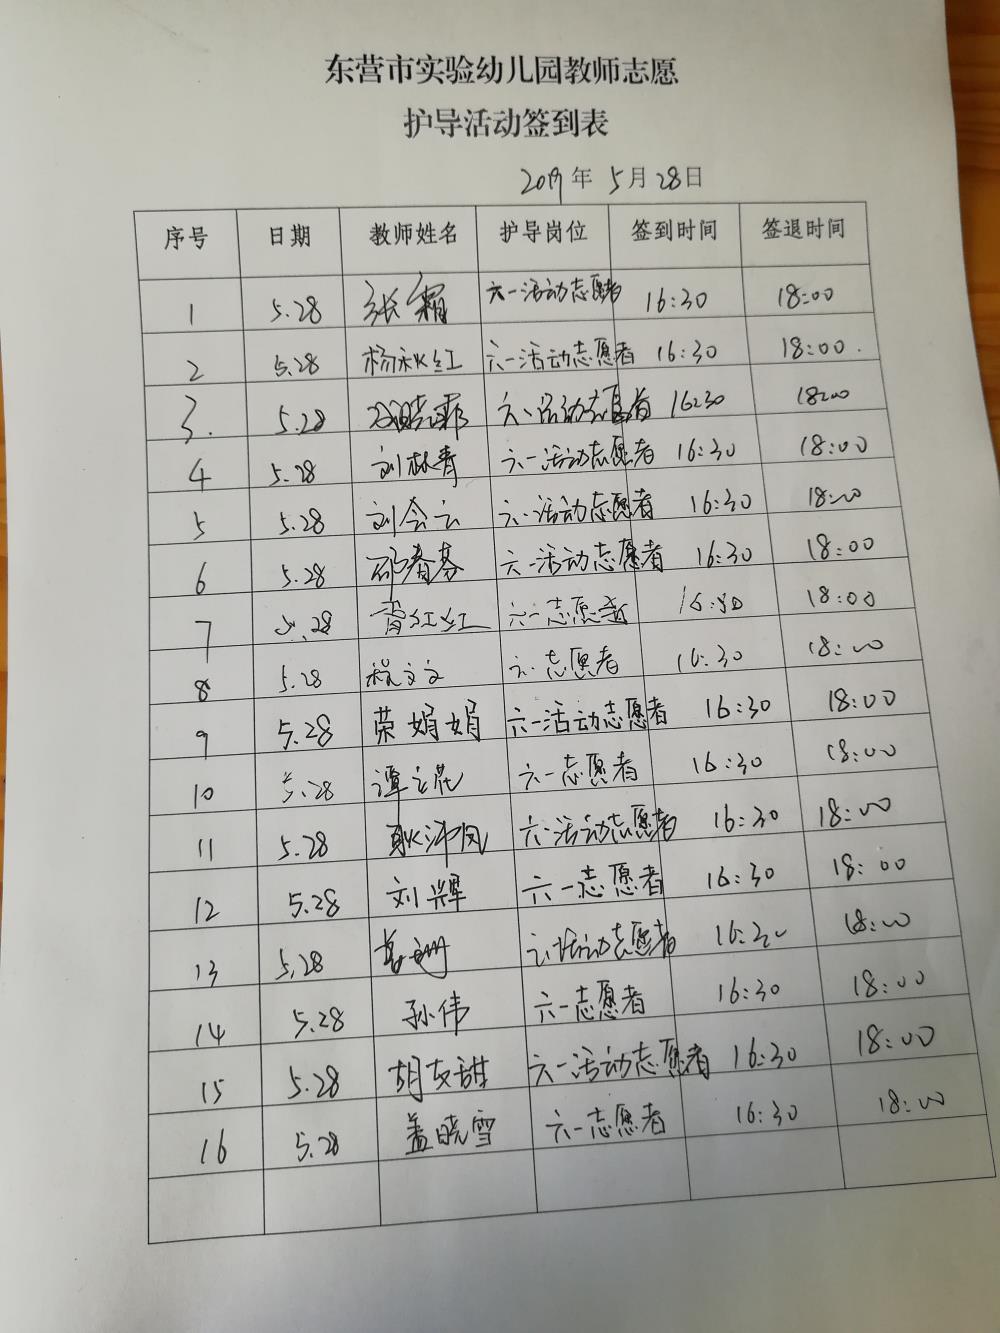 东营市实验幼儿园教师志愿
护导活动签到表
2019年 5月28日
序号 日期 教师姓名 护导岗位 签到时间 签退时间
1 5.28 张霜 六一活动志愿者 16:30 18:00
2 5.28 杨秋红 六一活动志愿者 16:30 18:00.
3. 5.28 六一活动志愿者 16:30 18:00
4 5.28 刘林青 六一活动志愿者 16:30 18:00
5 5.28 刘会云 六一活动志愿者 16:30 18:00
6 5.28 邵春芬 六一活动志愿者 16:30 18:00
7 5.28 红红 六一志愿者 16:30 18:00
8 5.28 程文文 六一志愿者 16:30 18:00
9 5.28 荣娟娟 六一活动志愿者 16:30 18:00
10 5.28 谭立花 六一志愿者 16:30 18:00
11 5.28 耿沛凤 六一活动志愿者 16:30 18:00
12 5.28 刘辉 六一志愿者 16:30 18:00
13 5.28 六一活动志愿者 16:30 18:00
14 5.28 孙伟 六一志愿者 16:30 18:00
15 5.28 胡友甜 六一活动志愿者 16:30 18:00
16 5.28 盖晓雪 六一志愿者 16:30 18:00